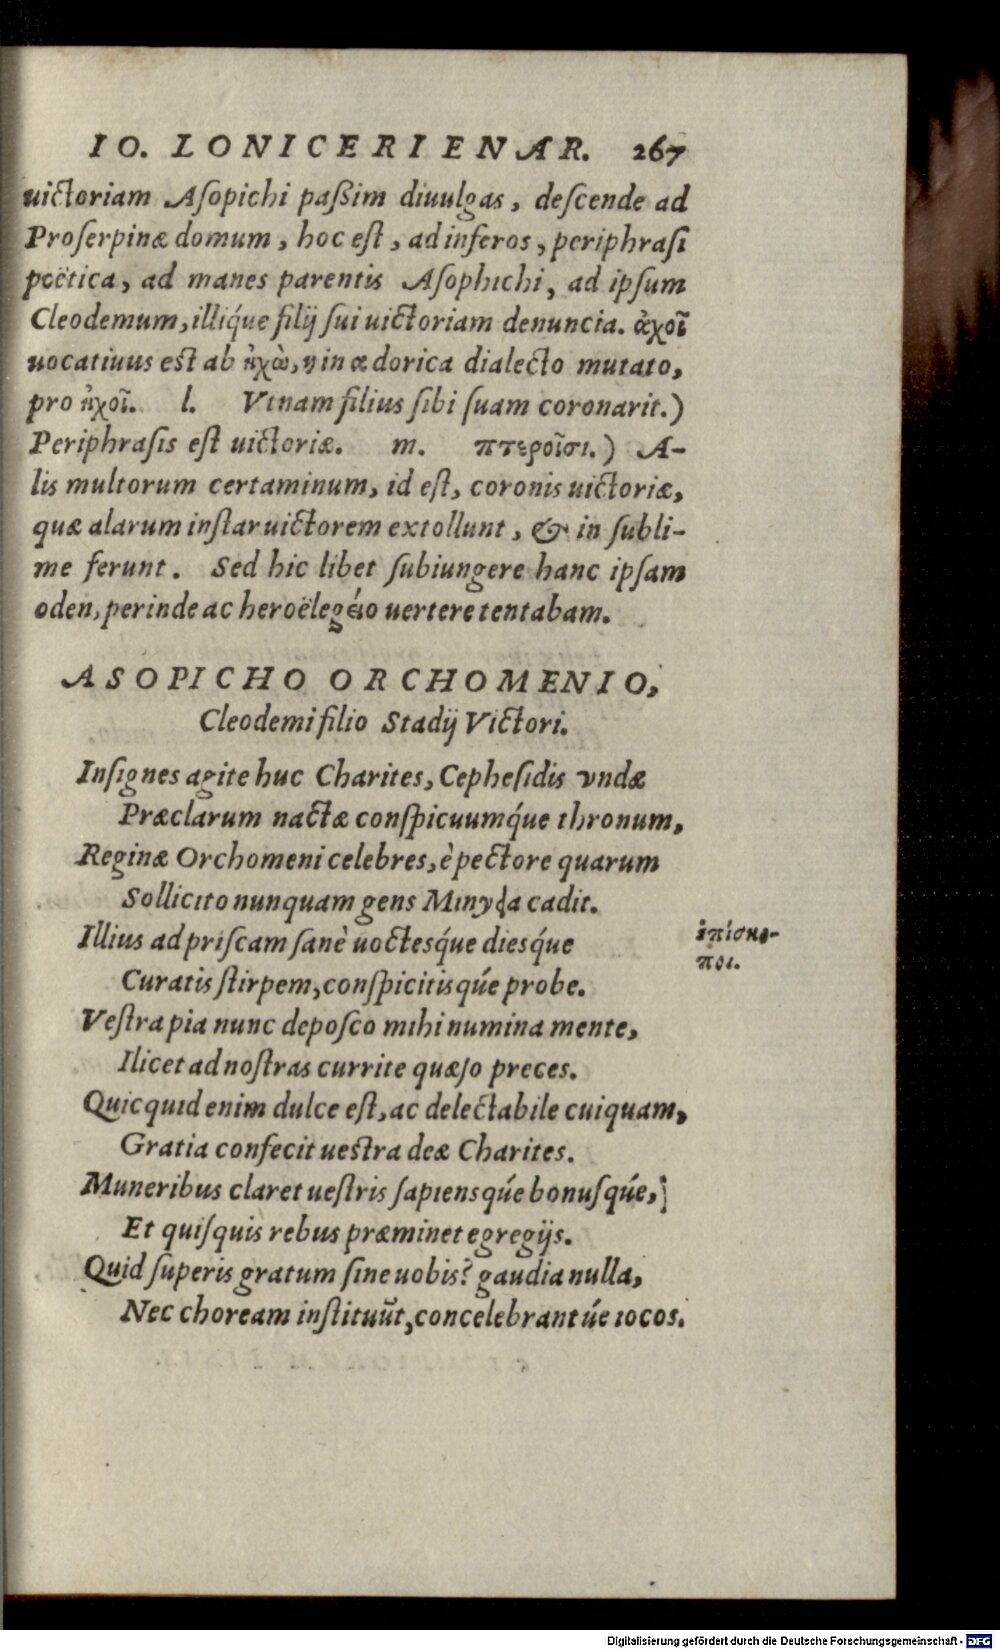 IO. LONICERI ENAR. 267
uictoriam Asopichi paßim diuulgas, descende ad
Proserpinæ domum, hoc est, ad inferos, periphrasi
poëtica, ad manes parentis Asophichi, ad ipsum
Cleodemum, illiq́ue filij sui uictoriam denuncia. ἀχοῖ
uocatiuus est ab ἠχὼ, η in α dorica dialecto mutato,
pro ἠχοῖ. l. Vtnam filius sibi suam coronarit.)
Periphrasis est uictoriæ. m. πτεροῖσι.) A-
lis multorum certaminum, id est, coronis uictoriæ,
quæ alarum instar uictorem extollunt, & in subli-
me ferunt. Sed hic libet subiungere hanc ipsam
oden, perinde ac heroëlegείο uertere tentabam.
ASOPICHO ORCHOMENIO,
Cleodemi filio Stadij Victori.
Insignes agite huc Charites, Cephesidis vndæ
Præclarum nactæ conspicuumq́ue thronum,
Reginæ Orchomeni celebres, è pectore quarum
Sollicito nunquam gens Minyea cadit.
Illius ad priscam sanè uoctesq́ue diesq́ue
Curatis stirpem, conspicitisq́ue probe.
ἐπίσκο-
ποι.
Vestra pia nunc deposco mihi numina mente,
Ilicet ad nostras currite quæso preces.
Quicquid enim dulce est, ac delectabile cuiquam,
Gratia confecit uestra deæ Charites.
Muneribus claret uestris sapiensq́ue bonusq́ue,
Et quisquis rebus præminet egregijs.
Quid superis gratum sine uobis? gaudia nulla,
Nec choream instituũt, concelebrantúe iocos.
Digitalisierung gefördert durch die Deutsche Forschungsgemeinschaft - DFG